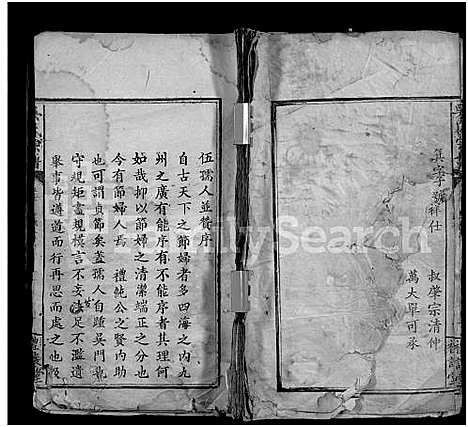 真字號祥仕
叔肇宗清仲
萬大畢可承
伍孺人並贊序
自古天下之節婦者多四海之內九
州之廣有能序有不能序者其理何
如哉抑以節婦之清潔端正之分也
今有節婦人焉 禮純公之賢內助
也可謂貞節矣蓋孺人自踵吳門
守規矩盡規模言不妄法足不濫遺
舉事皆遵道而行再思而處之也
FamilySearch